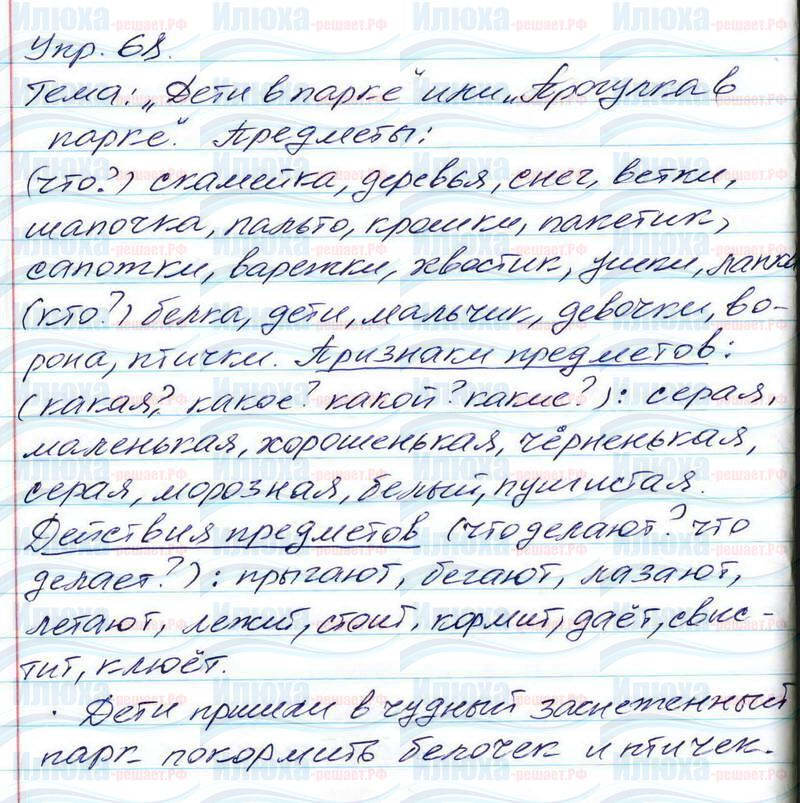 Упр. 68.
Тема: „Дети в парке" или „Прогулка в
парке". Предметы:
(что?) скамейка, деревья, снег, ветки,
шапочка, пальто, крошки, пакетик,
сапожки, варежки, хвостик, ушки, лапки
(кто?) белка, дети, мальчик, девочки, во-
рона, птички. Признаки предметов:
(какая? какое? какой? какие?): серая,
маленькая, хорошенькая, чёрненькая,
серая, морозная, белый, пушистая.
Действия предметов (что делают? что
делает?): прыгают, бегают, лазают,
летают, лежит, стоит, кормит, даёт, свис-
тит, клюёт.
Дети пришли в чудный заснеженный
парк покормить белочек и птичек.